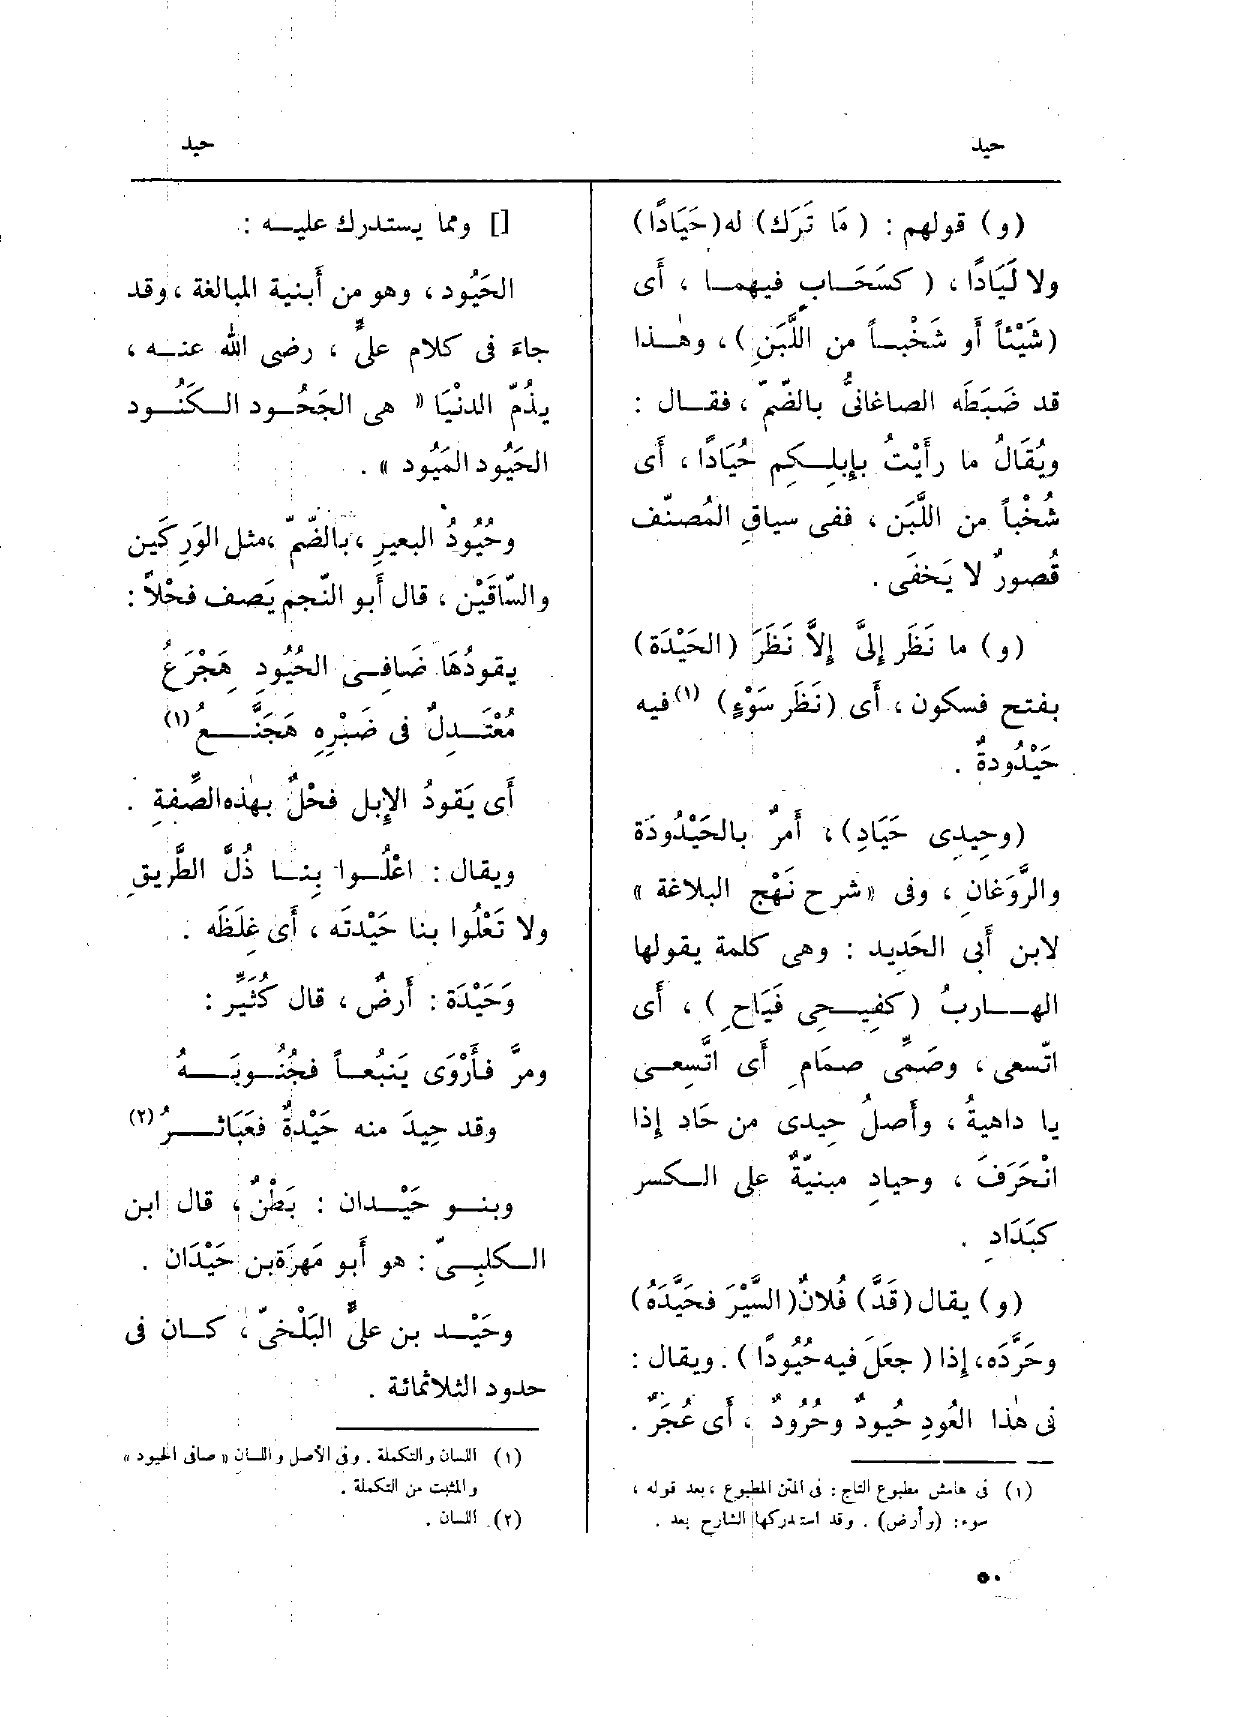 حيد
حيد
(و) قولهم : (مَا تَرَك) له (حَيَادًا)
ولا لَيَادًا ، (كسَحَابٍ فيهما ، أَى
(شَيْئاً أَو شَخْباً من اللَّبَنِ) ، وهٰذا
قد ضَبَطَه الصاغانىُّ بالضّمّ ، فقال :
ويُقَالُ ما رأَيْتُ بإِبلِكم حُيَادًا ، أَى
شُخْباً من اللَّبَن ، ففى سياقِ المُصنّف
قُصورٌ لا يَخفَى .
(و) ما نَظَر إِلىَّ إِلاَّ نَظَرَ (الحَيْدَة)
بفتح فسكون ، أَى (نَظَر سَوْءٍ) (١) فيه
حَيْدُودةٌ .
(وحِيدِى حَيَادِ) ، أَمرٌ بالحَيْدُودَة
والرَّوَغانِ ، وفى «شرح نَهْج البلاغة»
لابن أَبى الحَدِيد : وهى كلمة يقولها
الهاربُ (كفِيحِى فَيَاحِ) ، أَى
اتّسعى ، وصَمِّى صمَامِ أَى اتَّسِعى
يا داهيةُ ، وأَصلُ حِيدى من حَادِ إِذا
انْحَرَفَ ، وحيادِ مبنيّةٌ على الكسر
كبَدَادِ .
(و) يقال (قَدَّ) فُلانٌ (السَّيْرَ فحَيَّدَهُ)
وحَرَّدَه، إِذا (جعَلَ فيه حُيُودًا) . ويقال :
فى هٰذا العُودِ حُيودٌ وحُرُودٌ ، أَى عُجَرٌ .
(١) فى هامش مطبوع التاج : فى المتن المطبوع ، بعد قوله ،
سوء: (وأرض) . وقد استدركها الشارح بعد .
[] ومما يستدرك عليه :
الحَيُود ، وهو من أَبنية المبالغة ، وقد
جاءَ فى كلام علىٍّ ، رضى الله عنه ،
يذُمّ الدنْيَا «هى الجَحُود الكَنُود
الحَيُود المَيُود» .
وحُيُودُ البعيرِ ، بالضَّمّ ، مثل الوَرِكَين
والسّاقَيْن ، قال أَبو النّجم يَصف فحْلاً :
يقودُهَا ضَافِى الحُيُودِ هِجْرَعُ
مُعْتَدِلٌ فى ضَبْرِه هَجَنَّعُ (١)
أَى يَقودُ الإِبل فحْلٌ بهٰذه الصِّفةِ .
ويقال : اعْلُوا بِنا ذُلَّ الطَّرِيقِ
ولا تَعْلُوا بنا حَيْدتَه ، أَى غِلَظَه .
وَحَيْدَة : أَرضٌ ، قال كُثَيِّر :
ومرَّ فأَرْوَى يَنبُعاً فجُنُوبَهُ
وقد حِيدَ منه حَيْدةٌ فعَبَاثرُ (٢)
وبنو حَيْدان : بَطْنٌ ، قال ابن
الكلبِىّ : هو أَبو مَهرَة بن حَيْدَان .
وحَيْد بن علىٍّ البَلْخىّ ، كان فى
حدود الثلاثمائة .
(١) اللسان والتكملة . وفى الأصل واللسان «صافى الحيود»
والمثبت من التكملة .
(٢) اللسان .
٥٠